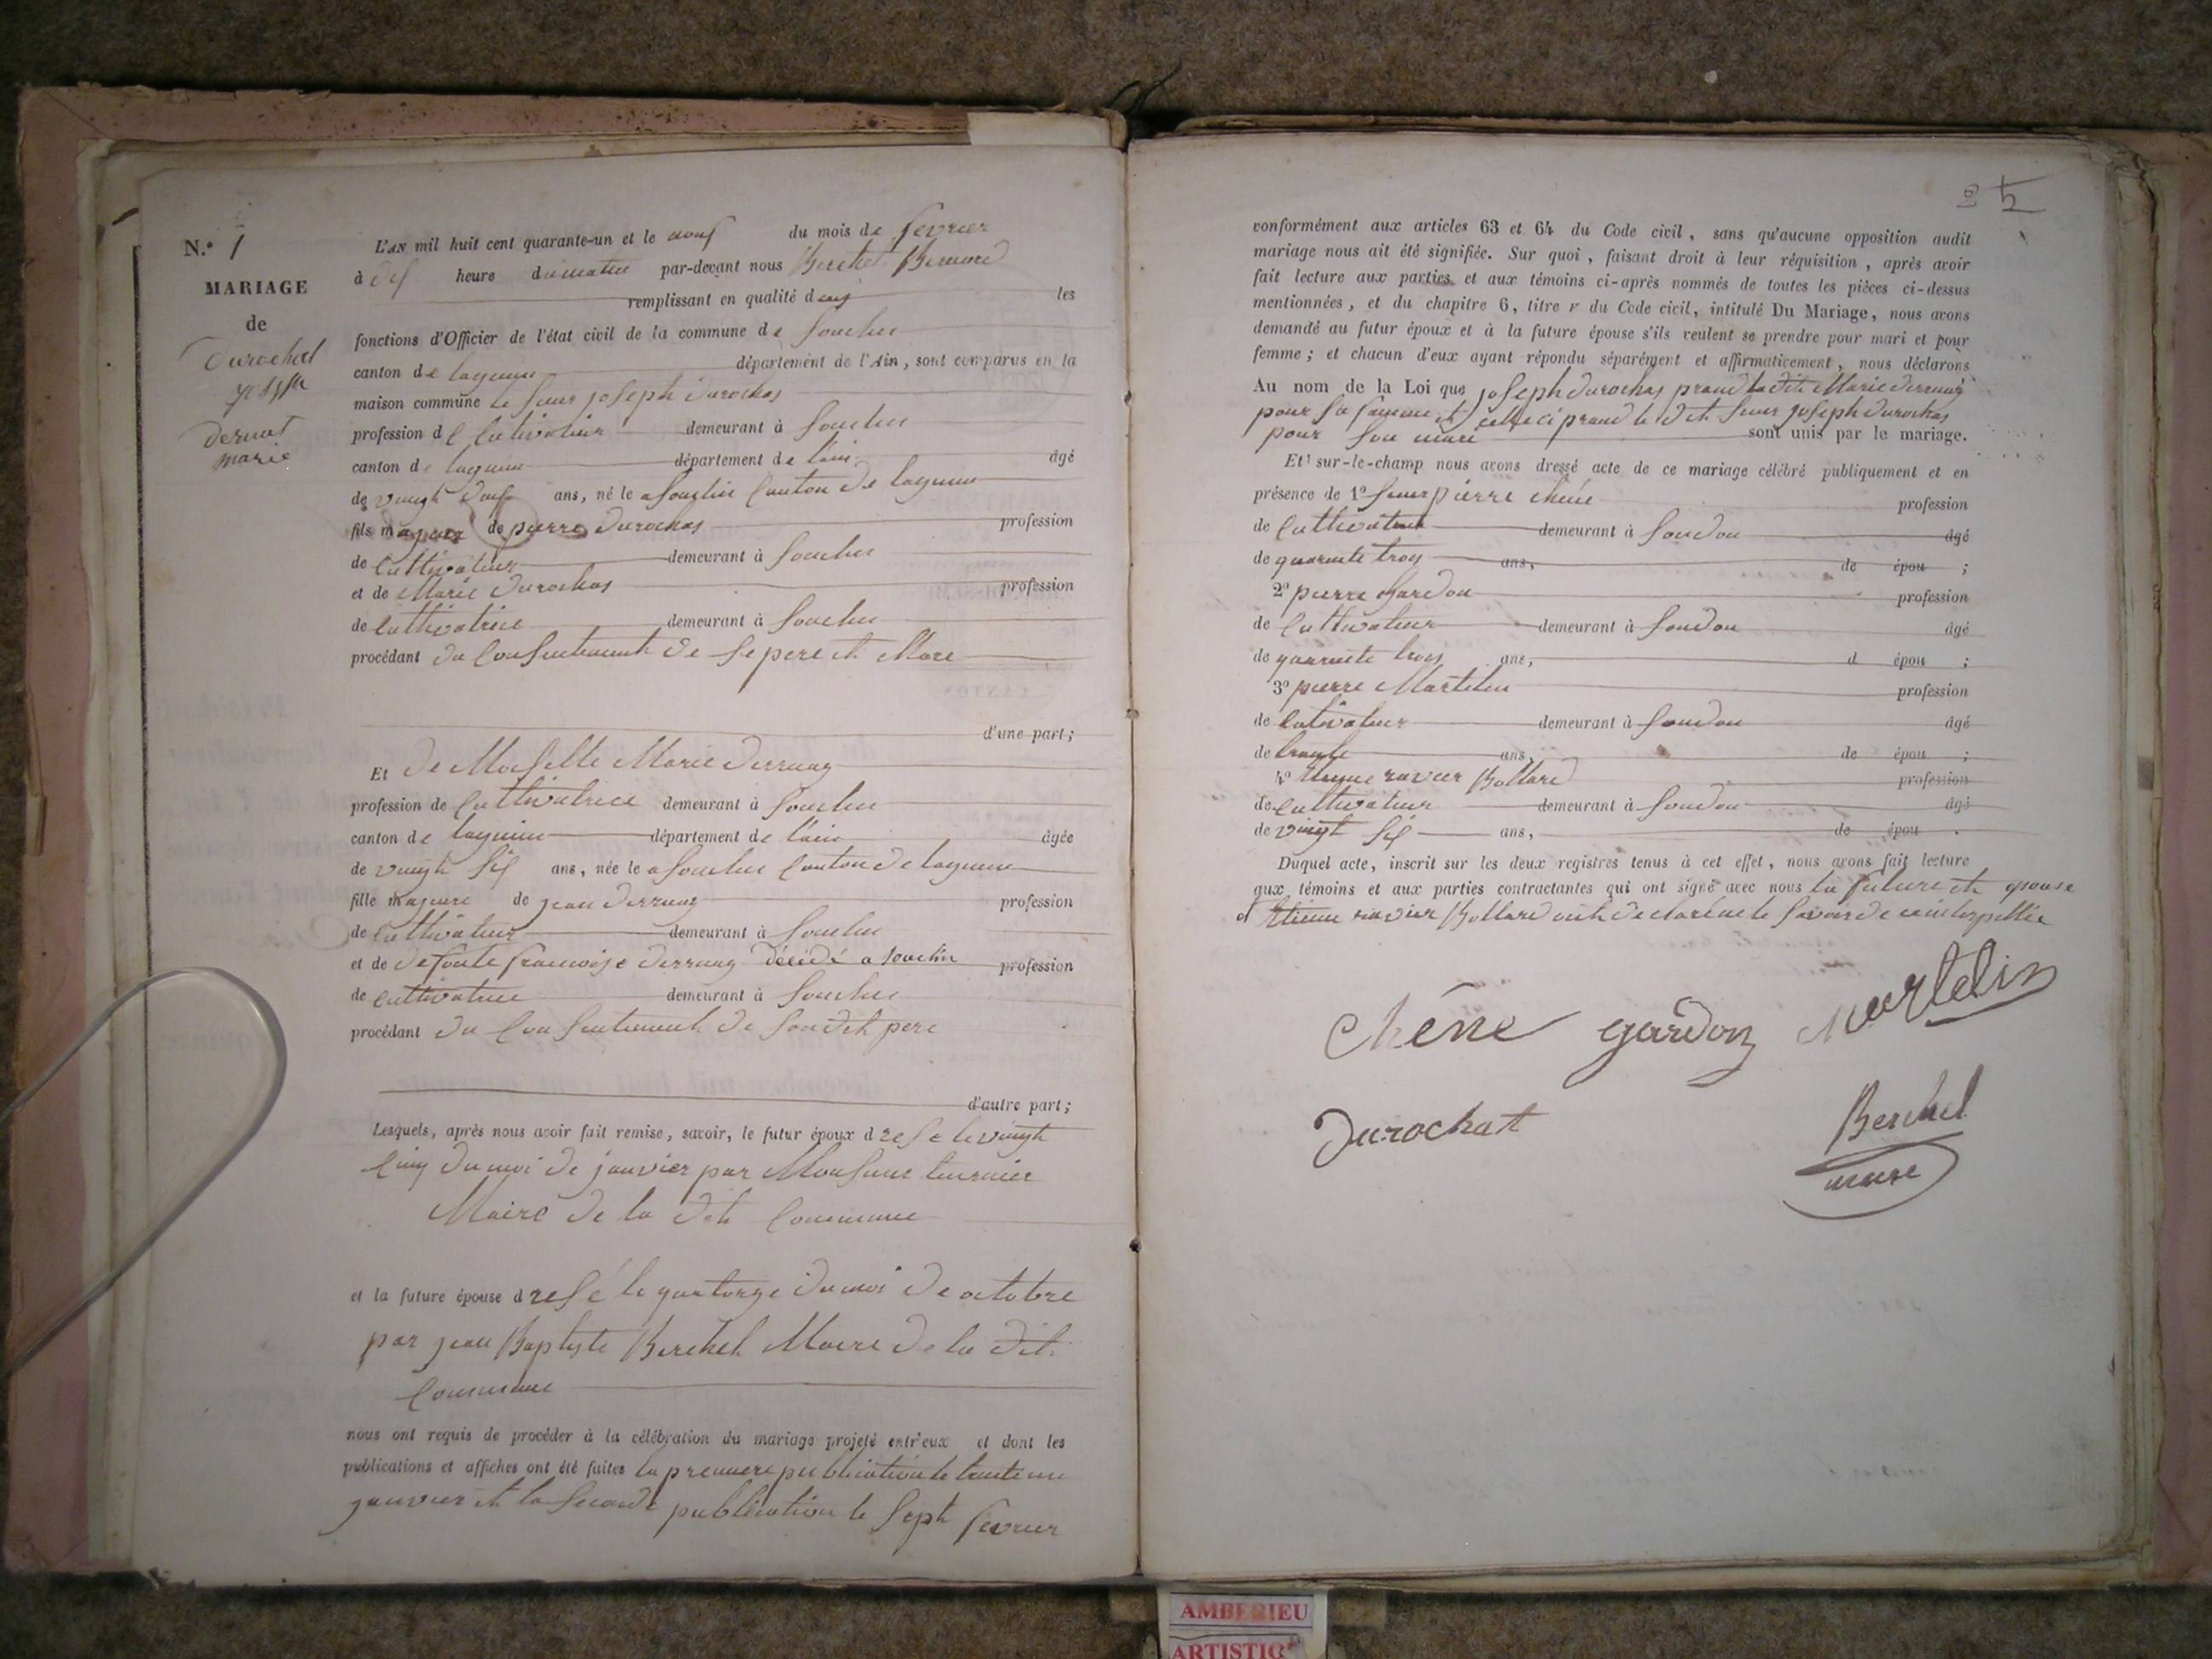 N.º 1
MARIAGE
de
Durochat
joseph
Dernat
marie
L'AN mil huit cent quarante-un et le neuf du mois de fevrier
à dix heure du matin par-devant nous Berchet Bernard
remplissant en qualité d les
fonctions d'Officier de l'état civil de la commune de Souclin
canton de lagnieu département de l'Ain, sont comparus en la
maison commune le sieur joseph durochas
profession de Cultivateur demeurant à Souclin
canton de lagnieu département de lain âgé
de vingt ans, né le a Souclin Canton de lagnieu
fils majeur de pierre durochas profession
de Cultivateur demeurant à Souclin
et de Marie durochas profession
de Cultivatrice demeurant à Souclin
procédant du Consentement de se pere et Mare
d'une part;
Et de Moiselle Marie derruaz
profession de Cultivatrice demeurant à Souclin
canton de lagnieu département de lain âgée
de vingt six ans, née le a Souclin Canton de lagnieu
fille majeure de jean derruaz profession
de Cultivateur demeurant à Souclin
et de defonte francoise derruaz décédé a souclin profession
de cultivatrice demeurant à Souclin
procédant du Consentement de son dit pere
d'autre part;
Lesquels, après nous avoir fait remise, savoir, le futur époux d resé le vingt
Cinq du moi de janvier par Monsieur tournier
Maire de la dite Commune
et la future épouse d resé le quatorze du moi de octobre
par jean Baptiste Berchet Maire de la dite
Commune
nous ont requis de procéder à la célébration du mariage projeté entr'eux et dont les
publications et affiches ont été faites la premiere publication le trente un
janvier et la seconde publication le sept fevrier
2
conformément aux articles 63 et 64 du Code civil, sans qu'aucune opposition audit
mariage nous ait été signifiée. Sur quoi, faisant droit à leur réquisition, après avoir
fait lecture aux parties et aux témoins ci-après nommés de toutes les pièces ci-dessus
mentionnées, et du chapitre 6, titre v du Code civil, intitulé Du Mariage, nous avons
demandé au futur époux et à la future épouse s'ils veulent se prendre pour mari et pour
femme; et chacun d'eux ayant répondu séparément et affirmativement, nous déclarons
Au nom de la Loi que joseph durochas prand la dite Marie derruaz
pour sa famme et celle ci prand le dit sieur joseph durochas
pour son mari sont unis par le mariage.
Et sur-le-champ nous avons dressé acte de ce mariage célébré publiquement et en
présence de 1º sieur pierre chêne profession
de Cultivateur demeurant à Soudon âgé
de quarente trois ans, de épou ;
2º pierre Gardon profession
de Cultivateur demeurant à Soudon âgé
de quarente trois ans, d épou ;
3º pierre Martelin profession
de Cultivateur demeurant à Soudon âgé
de trante ans, de épou ;
4º ravier Bollard profession
de Cultivateur demeurant à Soudon âgé
de vingt six ans, de épou .
Duquel acte, inscrit sur les deux registres tenus à cet effet, nous avons fait lecture
aux témoins et aux parties contractantes qui ont signé avec nous la future et epouse
et Etienne ravier Bollard ont declaré ne le savoir de ce interpellé
Chêne gardon Martelin
Durochat
Berchet
maire
AMBERIEU
ARTISTIQ